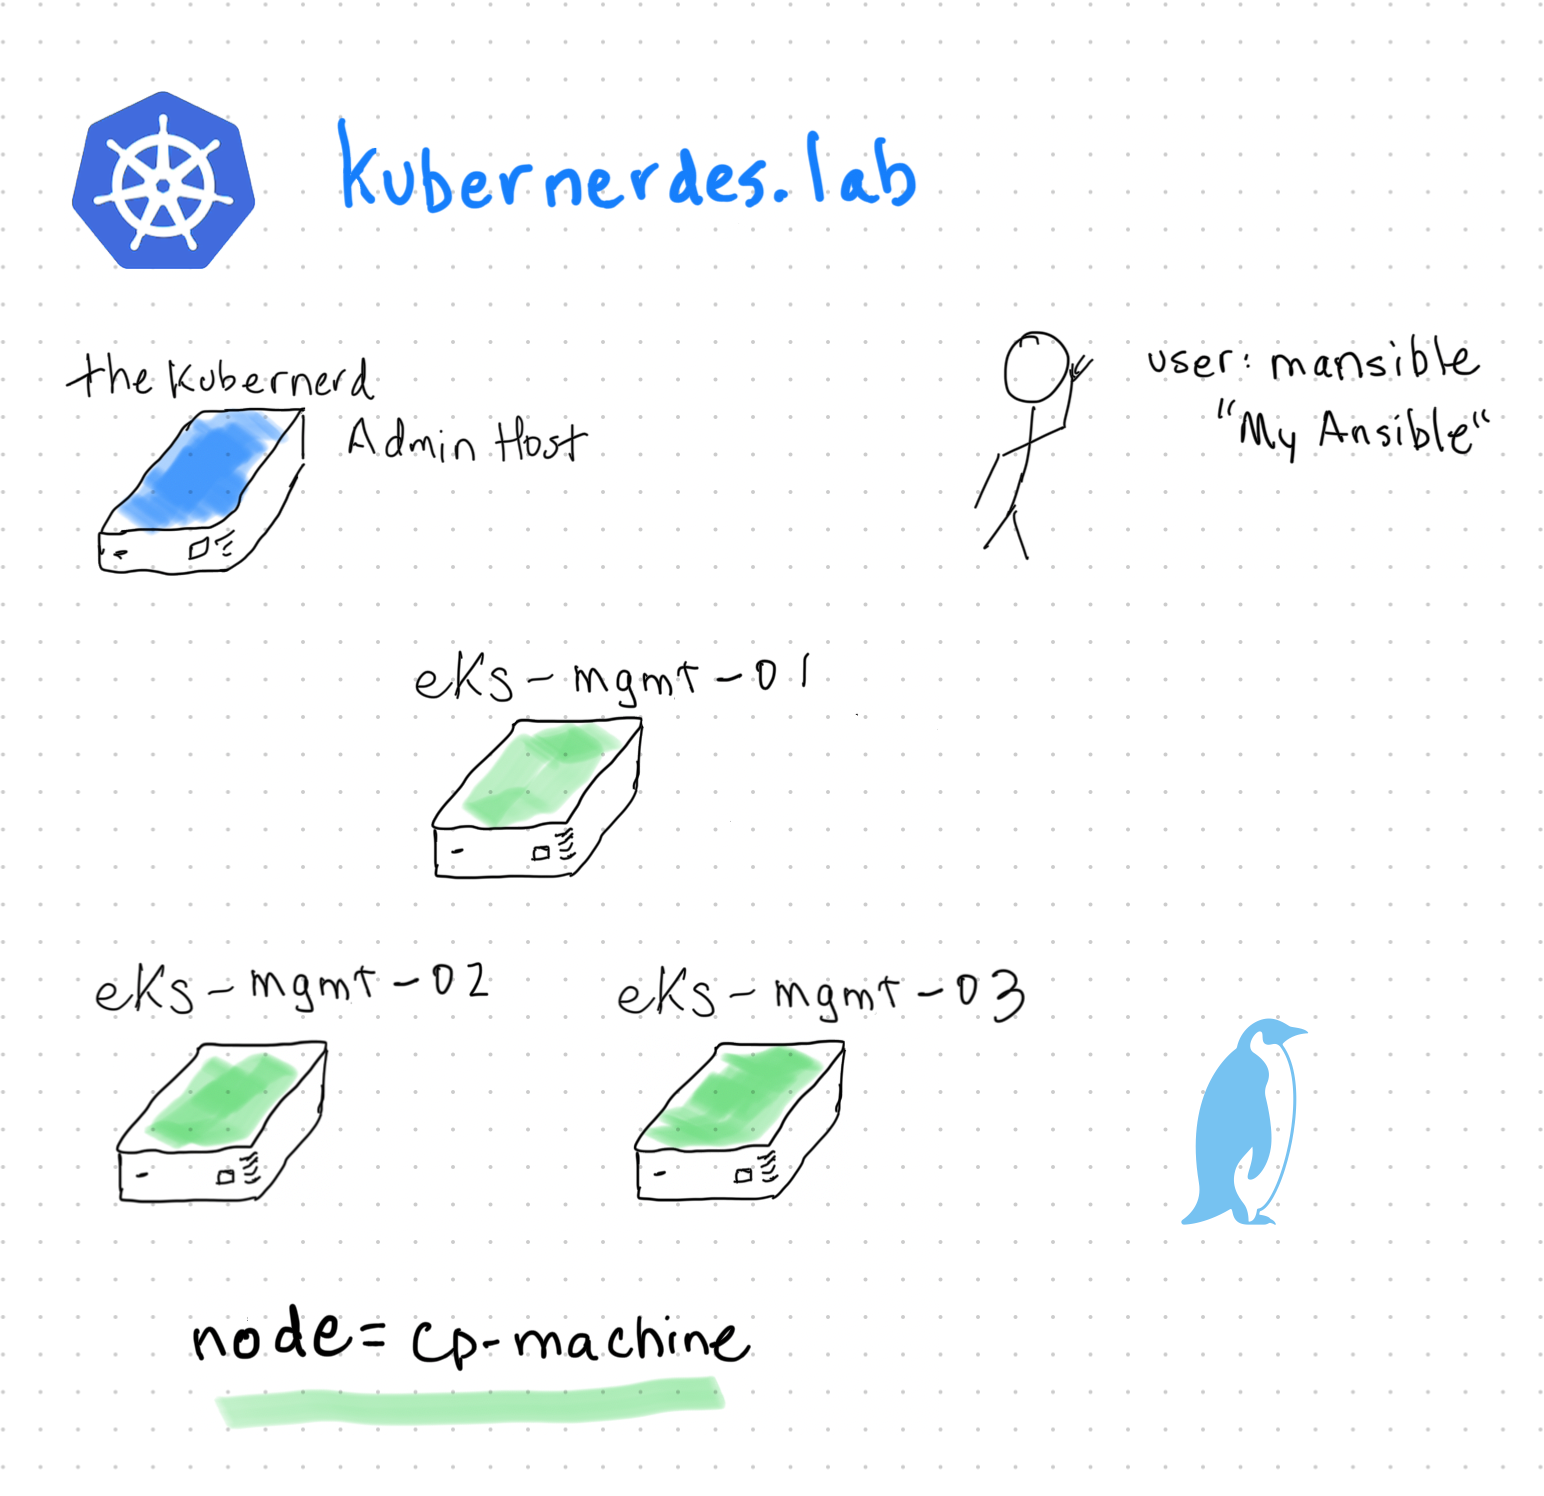 kubernerdes.lab
the Kubernerd
Admin Host
user: mansible
"My Ansible"
eKs-mgmt-01
eKs-mgmt-02
eKs-mgmt-03
node=cp-machine